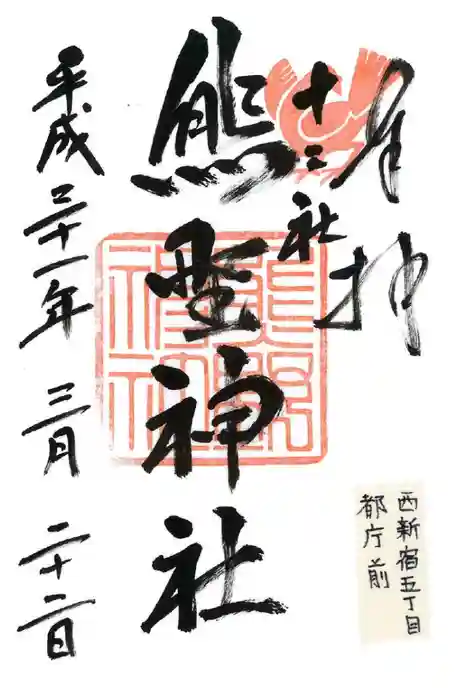 奉拝
十二社
熊野神社
熊野
神社
平成三十一年三月二十二日
西新宿五丁目
都庁前